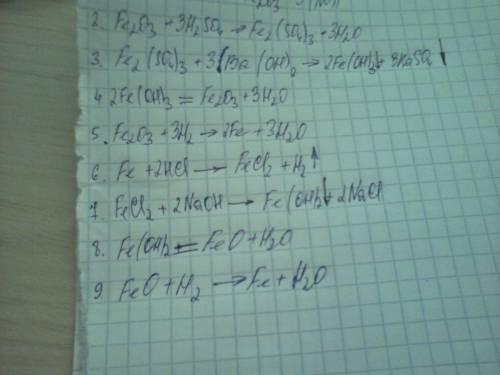 2. Fe₂O₃ + 3H₂SO₄ → Fe₂(SO₄)₃ + 3H₂O
3. Fe₂(SO₄)₃ + 3Ba(OH)₂ → 2Fe(OH)₃↓ + 3BaSO₄↓
4. 2Fe(OH)₃ = Fe₂O₃ + 3H₂O
5. Fe₂O₃ + 3H₂ → 2Fe + 3H₂O
6. Fe + 2HCl → FeCl₂ + H₂↑
7. FeCl₂ + 2NaOH → Fe(OH)₂↓ + 2NaCl
8. Fe(OH)₂ = FeO + H₂O
9. FeO + H₂ → Fe + H₂O